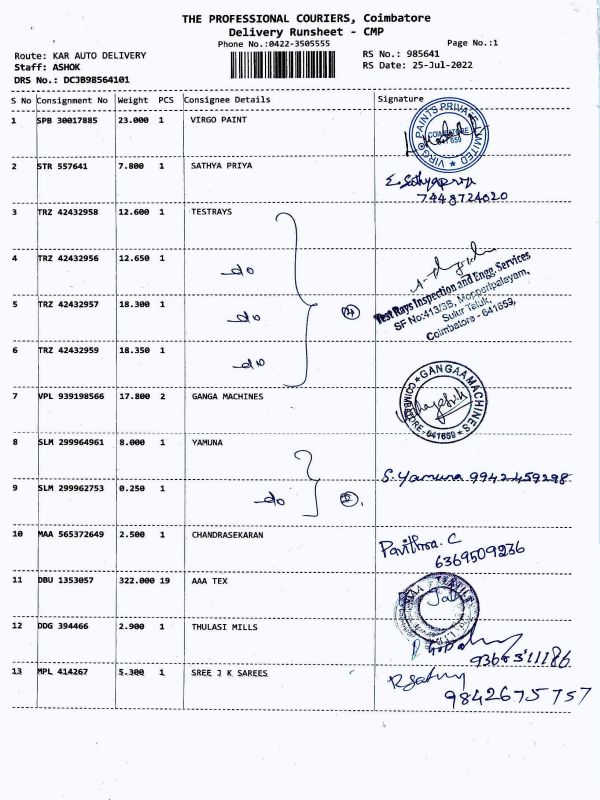 THE PROFESSIONAL COURIERS, Coimbatore
Delivery Runsheet - CMP
Phone No.:0422-3505555
Page No.:1
Route: KAR AUTO DELIVERY
RS No.: 985641
Staff: ASHOK
RS Date: 25-Jul-2022
DRS No.: DCJB98564101
S No Consignment No Weight PCS Consignee Details Signature
1 SPB 30017885 23.000 1 VIRGO PAINT
VIRGO PAINTS PRIVATE LIMITED
COIMBATORE
641 659
2 STR 557641 7.800 1 SATHYA PRIYA
E. Sathyapriya
7448724020
3 TRZ 42432958 12.600 1 TESTRAYS
4 TRZ 42432956 12.650 1 do
Test Rays Inspection and Engg. Services
SF No:413/3B, Mopperipalayam,
Sulur Taluk,
Coimbatore - 641659,
5 TRZ 42432957 18.300 1 do (4)
6 TRZ 42432959 18.350 1 do
7 VPL 939198566 17.800 2 GANGA MACHINES
GANGAA MACHINES
COIMBATORE - 641659
8 SLM 299964961 8.000 1 YAMUNA
S. Yamuna 9942459298
9 SLM 299962753 0.250 1 do
10 MAA 565372649 2.500 1 CHANDRASEKARAN
Pavithra. C
6369509236
11 DBU 1353057 322.000 19 AAA TEX
12 DDG 394466 2.900 1 THULASI MILLS
13 MPL 414267 5.300 1 SREE J K SAREES
9842675757